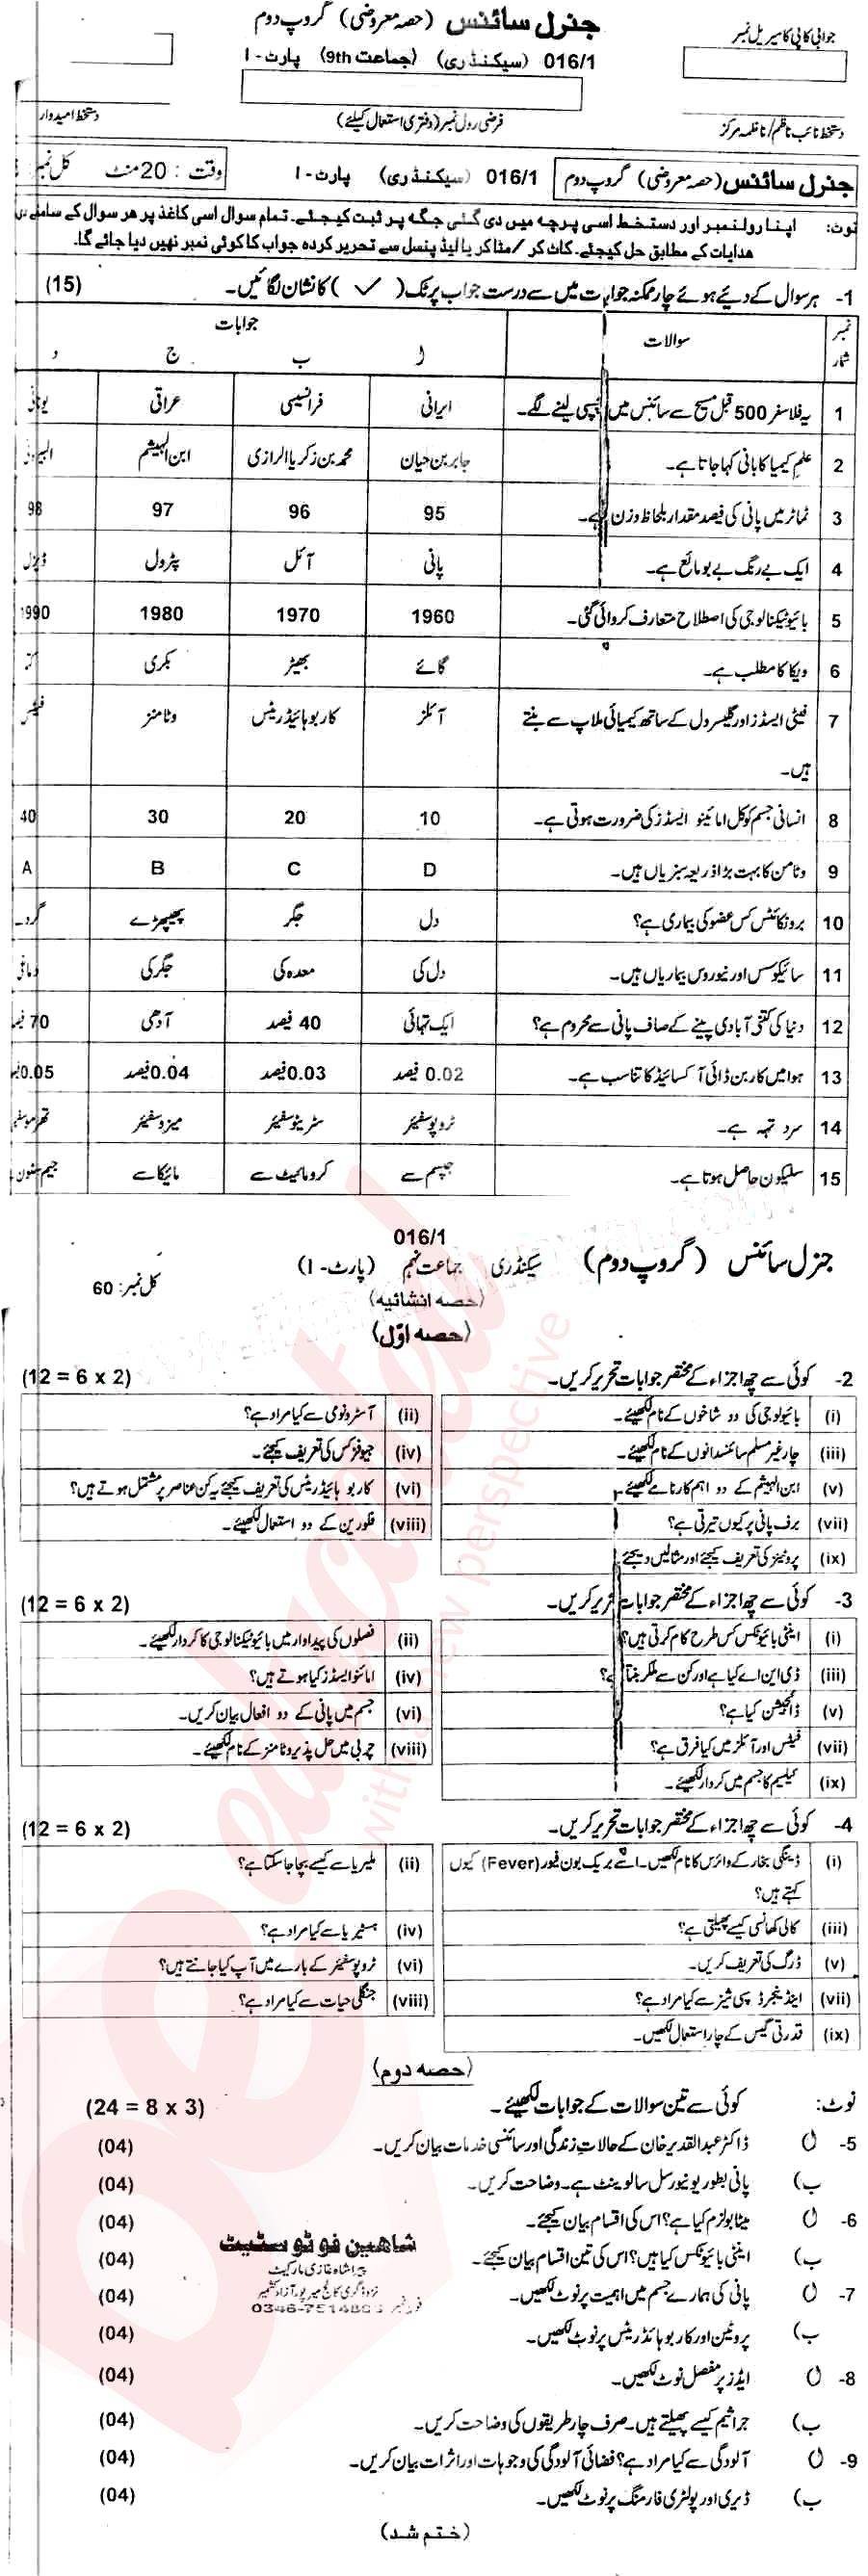 جنرل سائنس (حصہ معروضی) گروپ دوم
جوابی کاپی کا سیریل نمبر
016/1 (سیکنڈری) (جماعت 9th) پارٹ - I
فرضی رول نمبر (دفتری استعمال کیلئے)
دستخط نائب ناظم/ناظمہ مرکز
دستخط امیدوار
جنرل سائنس (حصہ معروضی) گروپ دوم 016/1 (سیکنڈری) پارٹ - I وقت : 20 منٹ کل نمبر
نوٹ: اپنا رولنمبر اور دستخط اسی پرچہ میں دی گئی جگہ پر ثبت کیجئے۔ تمام سوال اسی کاغذ پر ہر سوال کے سامنے دی
ھدایات کے مطابق حل کیجئے۔ کاٹ کر /مٹا کر یا لیڈ پنسل سے تحریر کردہ جواب کا کوئی نمبر نہیں دیا جائے گا۔
1- ہر سوال کے دیئے ہوئے چار ممکنہ جوابات میں سے درست جواب پر ٹک ( ✓ ) کا نشان لگائیں۔ (15)
نمبر شمار سوالات جوابات
ا ب ج د
1 یہ فلاسفر 500 قبل مسیح سے سائنس میں دلچسپی لینے لگے۔ ایرانی فرانسیسی عراقی یونانی
2 علم کیمیا کا بانی کہا جاتا ہے۔ جابر بن حیان محمد بن زکریا الرازی ابن الہیثم البیرونی
3 ٹماٹر میں پانی کی فیصد مقدار بلحاظ وزن ہے۔ 95 96 97 98
4 ایک بے رنگ بے بو مائع ہے۔ پانی آئل پٹرول ڈیزل
5 بائیوٹیکنالوجی کی اصطلاح متعارف کروائی گئی۔ 1960 1970 1980 1990
6 ویکا کا مطلب ہے۔ گائے بھیڑ بکری کتا
7 فیٹی ایسڈز اور گلیسرول کے ساتھ کیمیائی ملاپ سے بنتے ہیں۔ آئلز کاربوہائیڈریٹس وٹامنز فیٹس
8 انسانی جسم کو کل امائینو ایسڈز کی ضرورت ہوتی ہے۔ 10 20 30 40
9 وٹامن کا بہت بڑا ذریعہ سبزیاں ہیں۔ D C B A
10 برونکائٹس کس عضو کی بیماری ہے؟ دل جگر پھیپھڑے گردے
11 سائیکوسس اور نیوروسس بیماریاں ہیں۔ دل کی معدہ کی جگر کی دماغی
12 دنیا کی کتنی آبادی پینے کے صاف پانی سے محروم ہے؟ ایک تہائی 40 فیصد آدھی 70 فیصد
13 ہوا میں کاربن ڈائی آکسائیڈ کا تناسب ہے۔ 0.02 فیصد 0.03 فیصد 0.04 فیصد 0.05
14 سرد تہہ ہے۔ ٹروپوسفیئر سٹریٹوسفیئر میزوسفیئر تھرموسفیئر
15 سلیکون حاصل ہوتا ہے۔ جپسم سے کرومائیٹ سے مائیکا سے جیم سٹون
016/1
جنرل سائنس (گروپ دوم) سیکنڈری جماعت نہم (پارٹ - I) کل نمبر: 60
(حصہ انشائیہ)
(حصہ اوّل)
2- کوئی سے چھ اجزاء کے مختصر جوابات تحریر کریں۔ (12 = 6 x 2)
(i) بائیولوجی کی دو شاخوں کے نام لکھیئے۔ (ii) آسٹرونومی سے کیا مراد ہے؟
(iii) چار غیر مسلم سائنسدانوں کے نام لکھیئے۔ (iv) جیوفزکس کی تعریف کیجئے۔
(v) ابن الہیثم کے دو اہم کارنامے لکھیئے۔ (vi) کاربوہائیڈریٹس کی تعریف کیجئے یہ کن عناصر پر مشتمل ہوتے ہیں؟
(vii) برف پانی پر کیوں تیرتی ہے؟ (viii) فلورین کے دو استعمال لکھیئے۔
(ix) پروٹینز کی تعریف کیجئے اور مثالیں دیجئے
3- کوئی سے چھ اجزاء کے مختصر جوابات تحریر کریں۔ (12 = 6 x 2)
(i) اینٹی بائیوٹکس کس طرح کام کرتی ہیں؟ (ii) فصلوں کی پیداوار میں بائیوٹیکنالوجی کا کردار لکھیئے۔
(iii) ڈی این اے کیا ہے اور کن سے ملکر بنتا ہے؟ (iv) امائنو ایسڈز کیا ہوتے ہیں؟
(v) ڈائجیشن کیا ہے؟ (vi) جسم میں پانی کے دو افعال بیان کریں۔
(vii) فیٹس اور آئلز میں کیا فرق ہے؟ (viii) چربی میں حل پذیر وٹامنز کے نام لکھیئے۔
(ix) کیلسیم کا جسم میں کردار لکھیئے۔
4- کوئی سے چھ اجزاء کے مختصر جوابات تحریر کریں۔ (12 = 6 x 2)
(i) ڈینگی بخار کے وائرس کا نام لکھیں۔ اسے بریک بون فیور (Fever) کیوں کہتے ہیں؟ (ii) ملیریا سے کیسے بچا جا سکتا ہے؟
(iii) کالی کھانسی کیسے پھیلتی ہے؟ (iv) ہسٹیریا سے کیا مراد ہے؟
(v) ڈرگ کی تعریف کریں۔ (vi) ٹروپوسفیئر کے بارے میں آپ کیا جانتے ہیں؟
(vii) اینڈینجرڈ سپی شیز سے کیا مراد ہے؟ (viii) جنگلی حیات سے کیا مراد ہے؟
(ix) قدرتی گیس کے چار استعمال لکھیں۔
(حصہ دوم)
نوٹ: کوئی سے تین سوالات کے جوابات لکھیئے۔ (24 = 8 x 3)
5- ا) ڈاکٹر عبدالقدیر خان کے حالات زندگی اور سائنسی خدمات بیان کریں۔ (04)
ب) پانی بطور یونیورسل سالوینٹ ہے۔ وضاحت کریں۔ (04)
6- ا) میٹابولزم کیا ہے؟ اس کی اقسام بیان کیجئے۔ (04)
ب) اینٹی بائیوٹکس کیا ہیں؟ اس کی تین اقسام بیان کیجئے۔ (04)
7- ا) پانی کی ہمارے جسم میں اہمیت پر نوٹ لکھیں۔ (04)
ب) پروٹین اور کاربوہائڈریٹس پر نوٹ لکھیں۔ (04)
8- ا) ایڈز پر مفصل نوٹ لکھیں۔ (04)
ب) جراثیم کیسے پھیلتے ہیں۔ صرف چار طریقوں کی وضاحت کریں۔ (04)
9- ا) آلودگی سے کیا مراد ہے؟ فضائی آلودگی کی وجوہات اور اثرات بیان کریں۔ (04)
ب) ڈیری اور پولٹری فارمنگ پر نوٹ لکھیں۔ (04)
شاھین فوٹو سٹیٹ
نزد ڈگری کالج میرپور آزاد کشمیر
(ختم شد)
beeducated
with new perspective